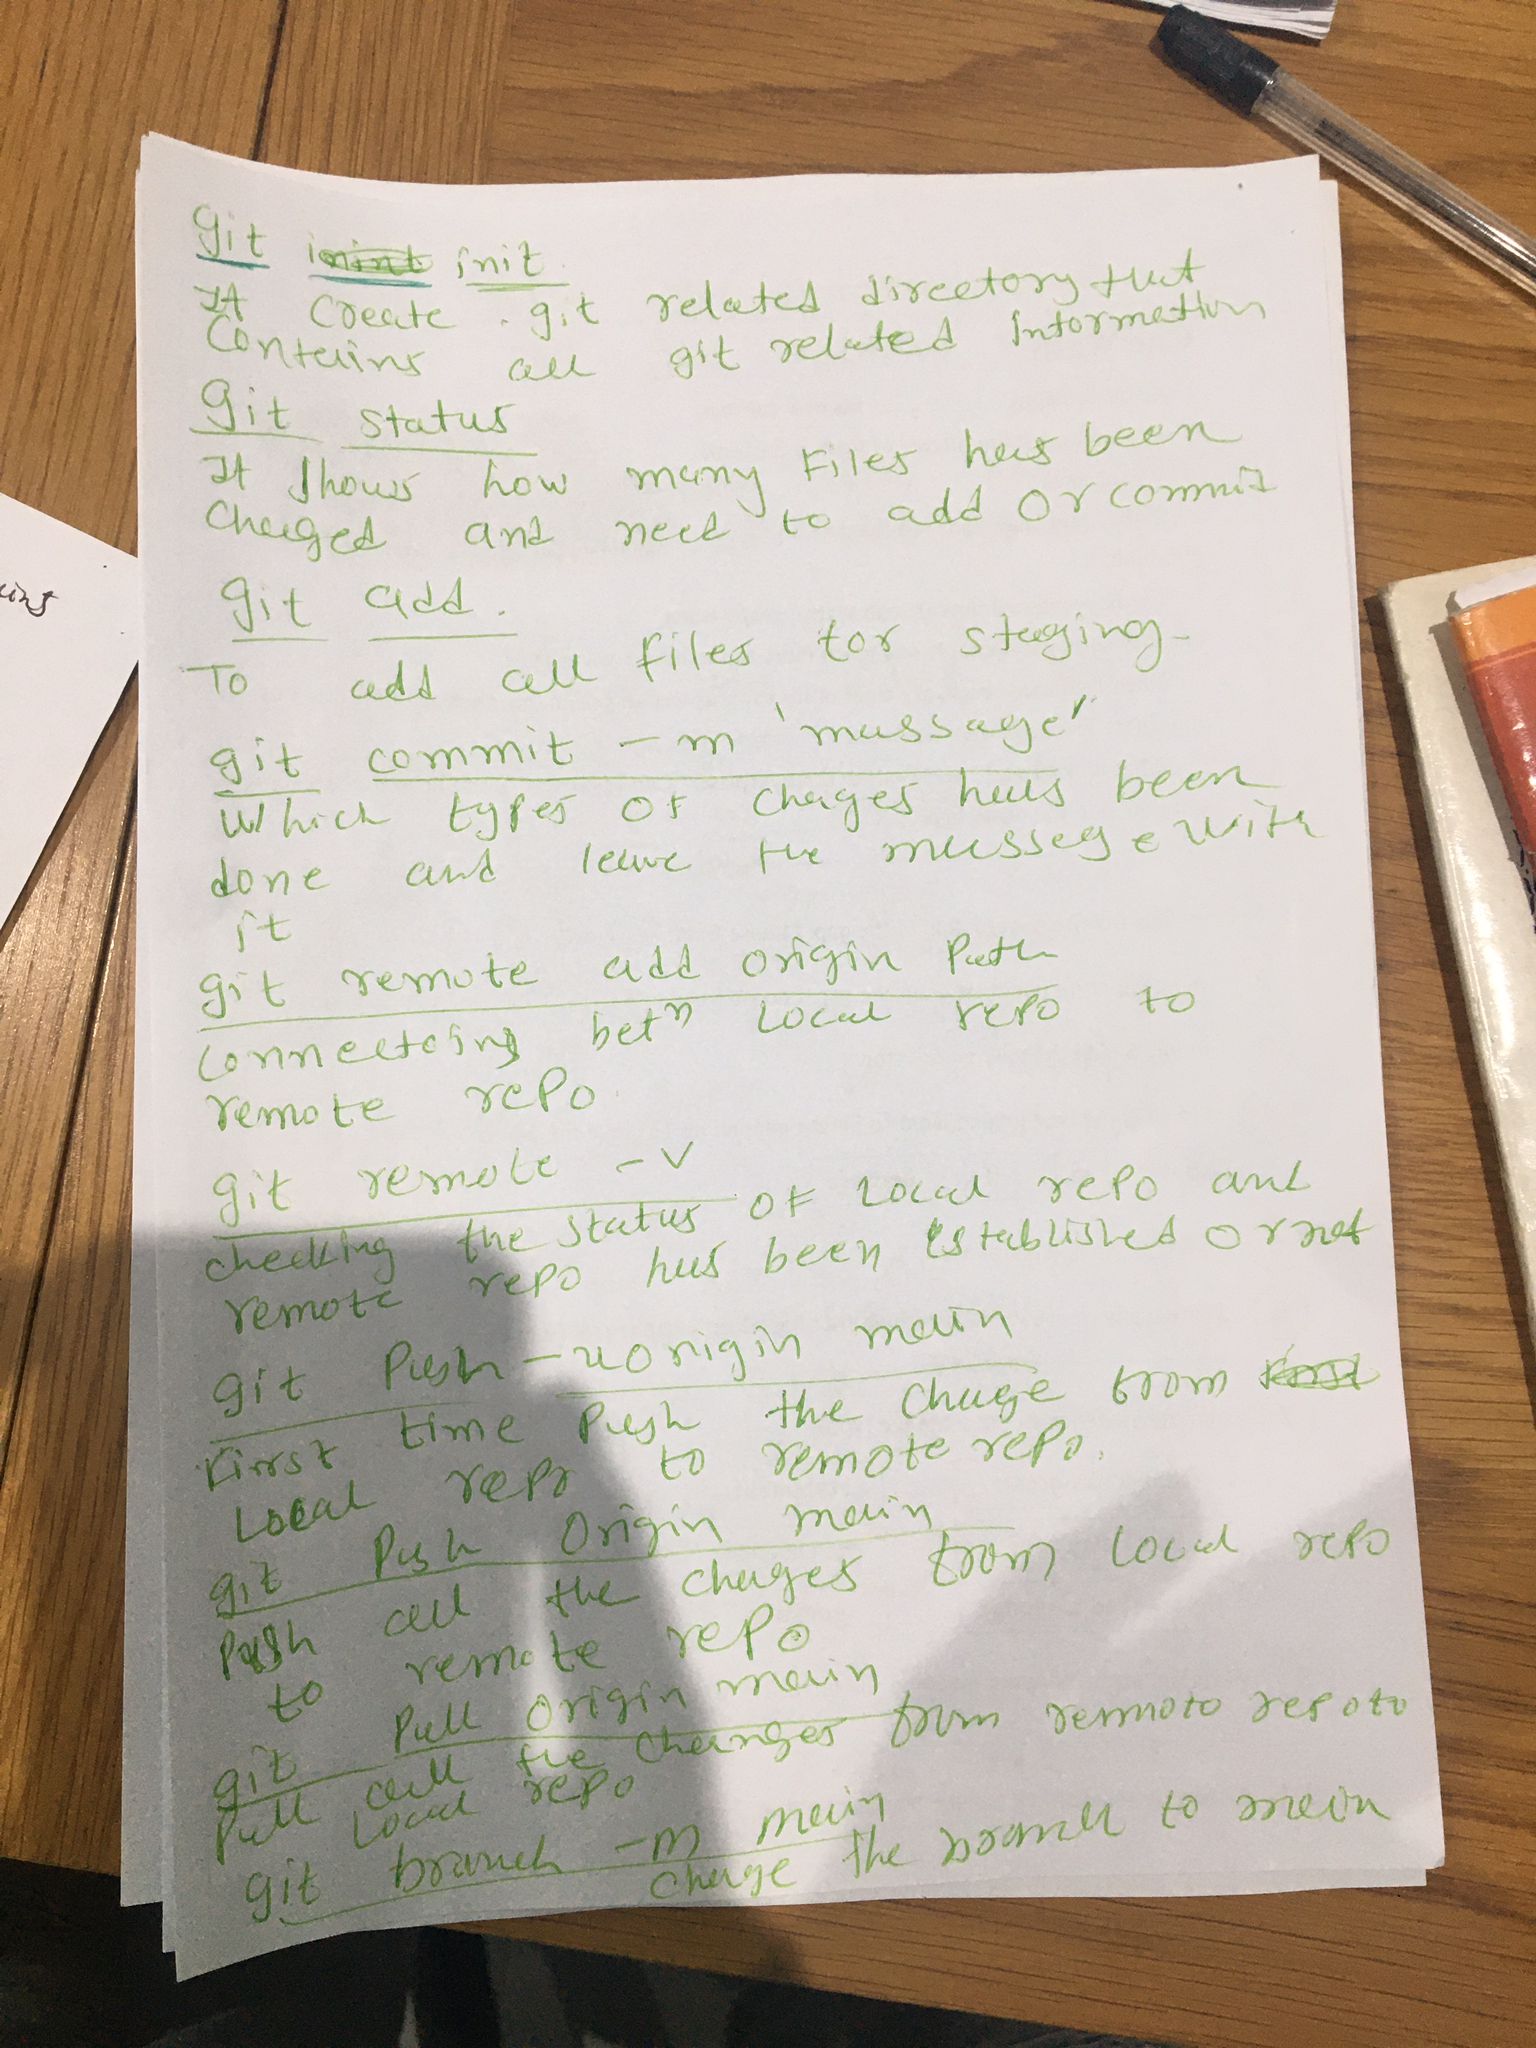 git init
It create .git related directory that
Contains all git related information
git status
It shows how many Files has been
Chaged and need to add Or commit
git add .
To add all Files for staging.
git commit -m 'massage"
Which types of chages has been
done and leave the massege with
it
git remote add origin Path
Connectcing betn Local repo to
remote repo
git remote -v
checking the status of Local repo and
remote repo has been established or not
git Push -u origin main
First time Push the chage from
Local repo to remote repo.
git Push Origin main
Push all the chages from Local repo
to remote repo
git Pull origin main
Pull all the changes from remoto repo to
Local repo
git branch -m main
Chage the branch to main